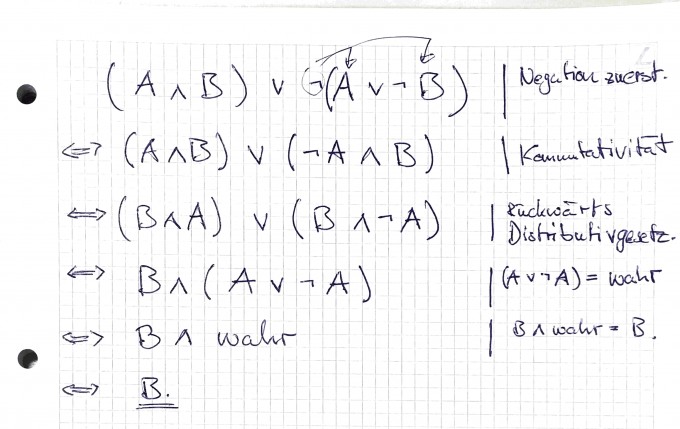 (A ∧ B) ∨ ¬(A ∨ ¬B) | Negation zuerst.
⇔ (A∧B) ∨ (¬A ∧ B) | Kommutativität
⇔ (B∧A) ∨ (B ∧ ¬A) | rückwärts
Distributivgesetz.
⇔ B∧(A ∨ ¬A) | (A ∨ ¬A) = wahr
⇔ B ∧ wahr | B ∧ wahr = B.
⇔ B.